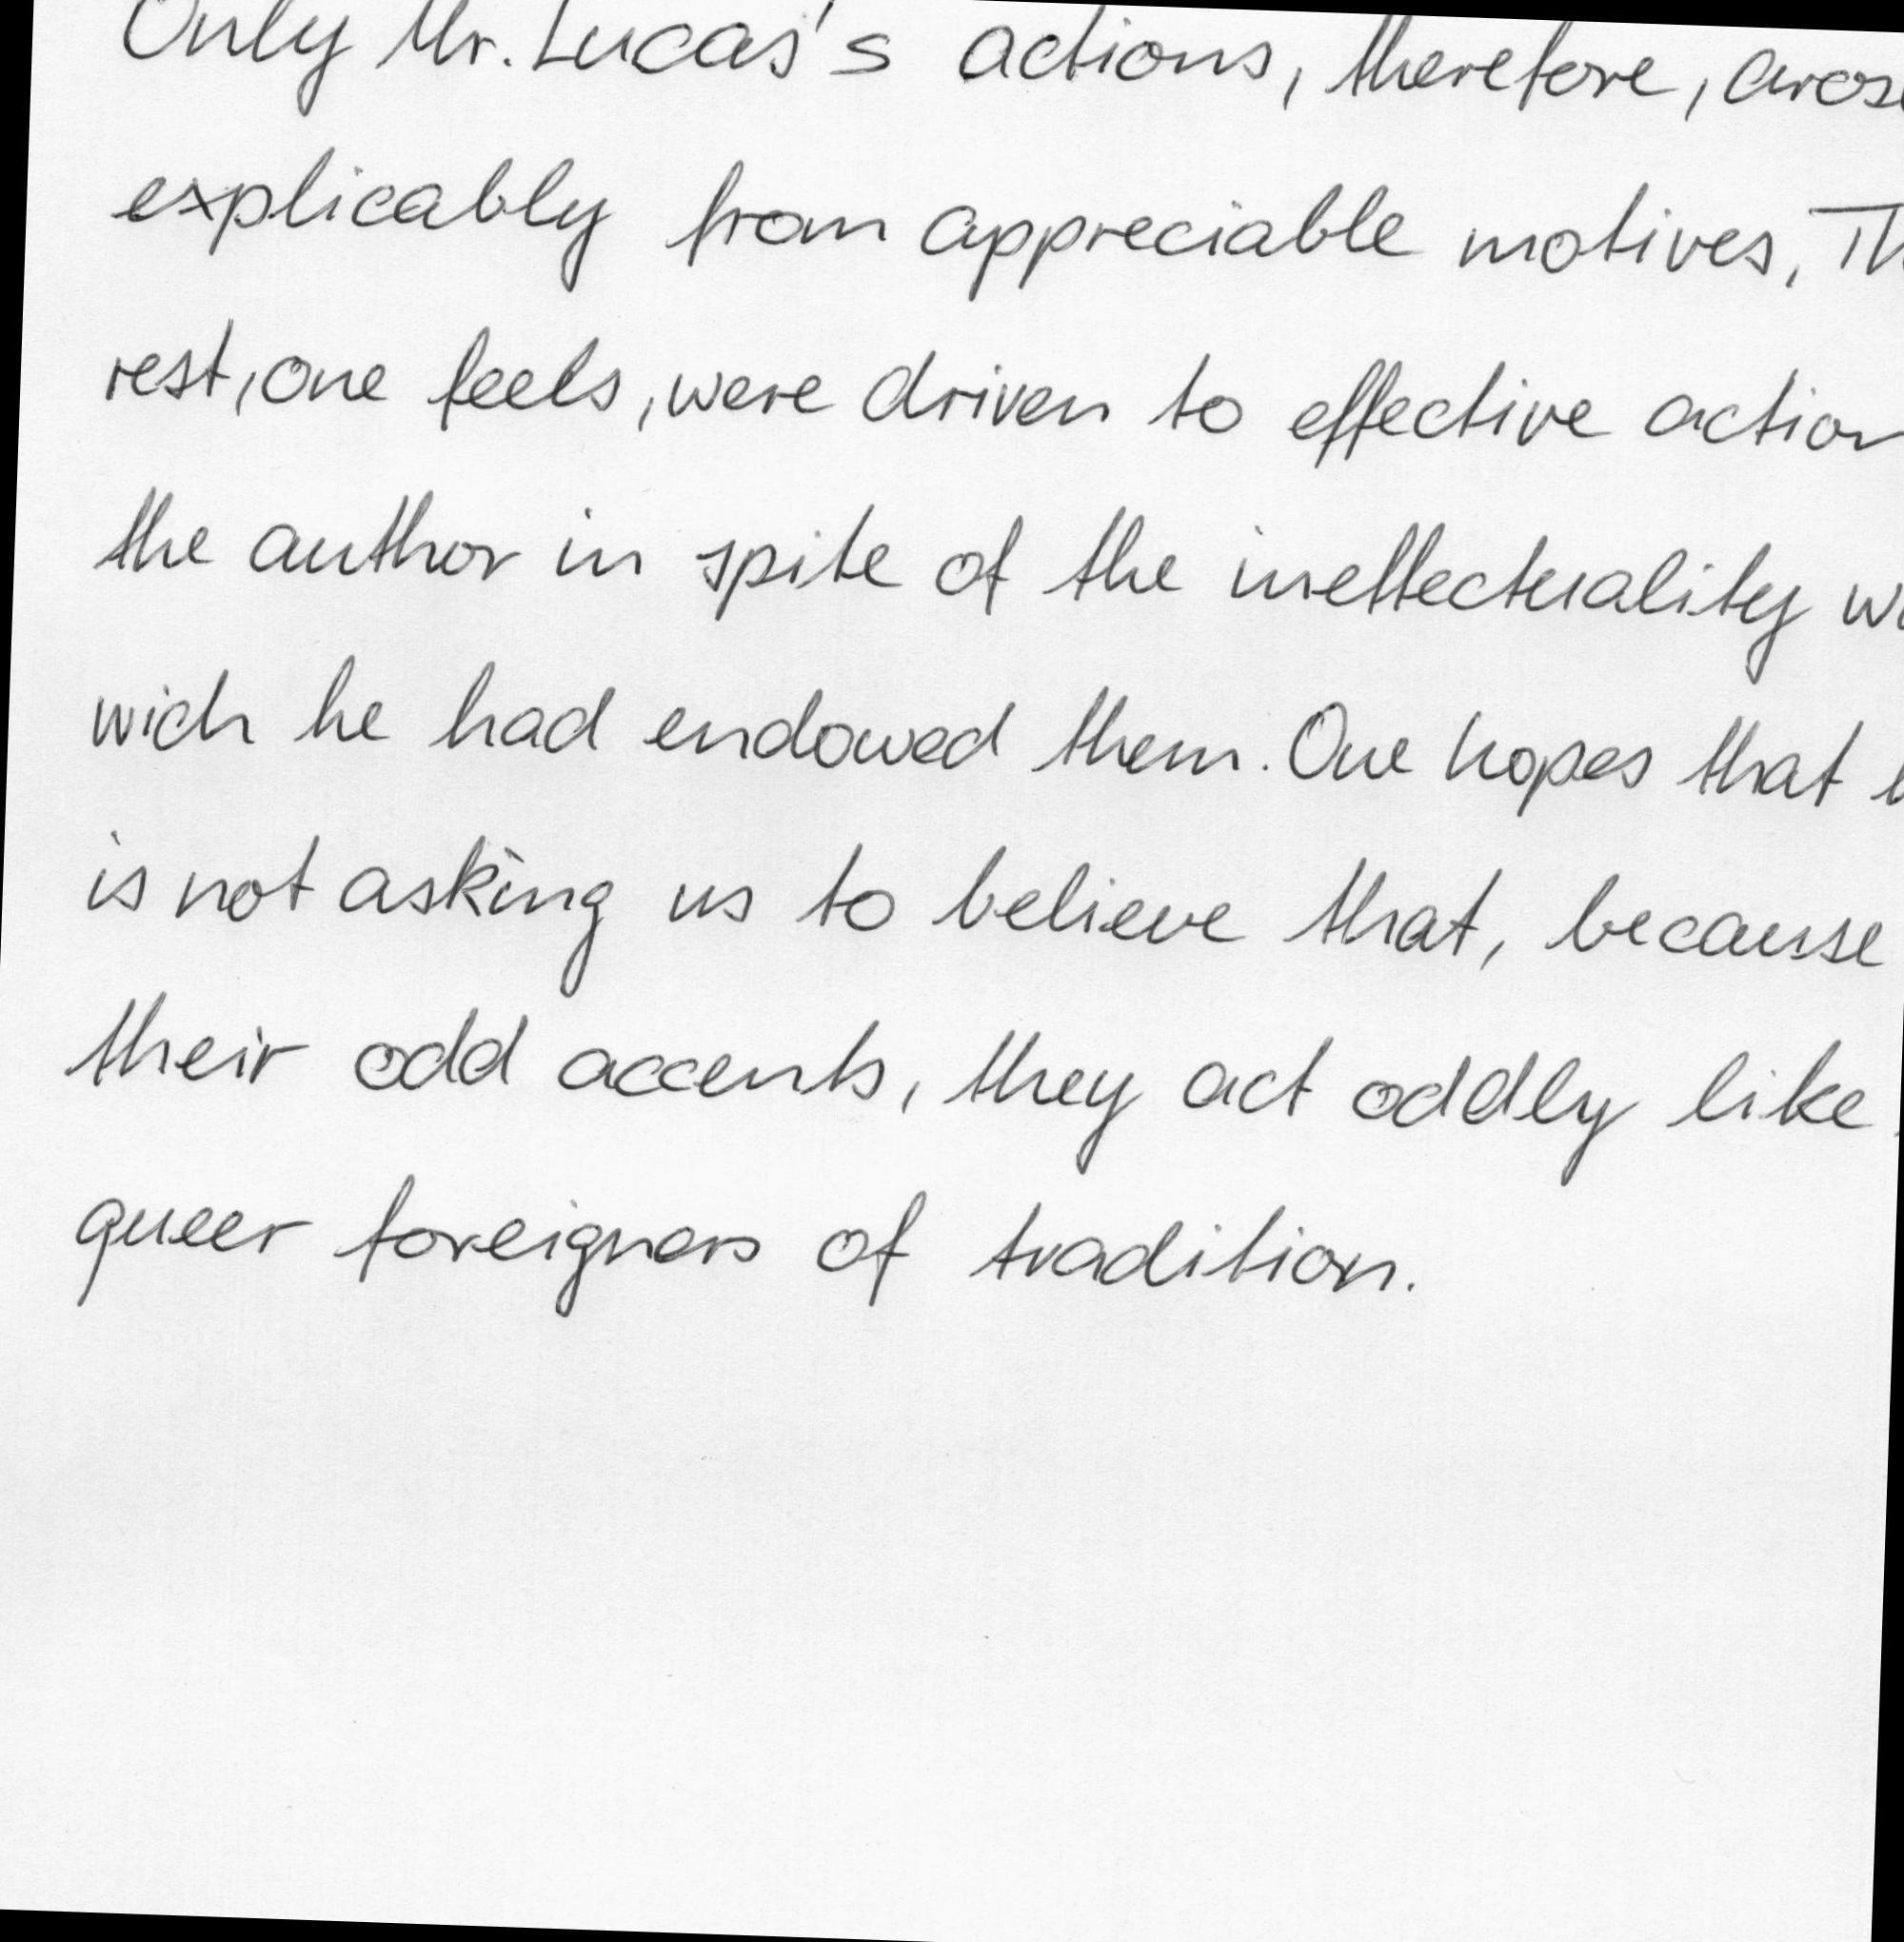 Only Mr. Lucas's actions, therefore, arose
explicably from appreciable motives, Th
rest, one feels, were driven to effective action
the author in spite of the ineffectuality
wich he had endowed them. One hopes that
is not asking us to believe that, because
their odd accents, they act oddly like
queer foreigners of tradition.